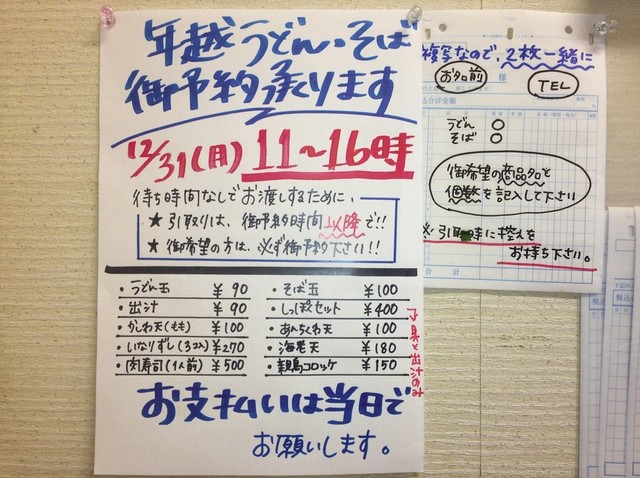 年越うどん・そば
御予約承ります
12/31(月) 11〜16時
待ち時間なしでお渡しするために、
★ 引取りは、御予約時間以降で!!
★ 御希望の方は、必ず御予約下さい!!
・うどん玉 ¥90
・出汁 ¥90
・かしわ天(もも) ¥100
・いなりずし(3コ入) ¥270
・肉寿司(1人前) ¥500
・そば玉 ¥100
・しっぽくセット ¥400
・あんちくわ天 ¥100
・海老天 ¥180
・親鶏コロッケ ¥150
具と出汁のみ
お支払いは当日で
お願いします。
複写なので、2枚一緒に
お名前 様 TEL
込合計金額
うどん ○
そば ○
御希望の商品名と
個数を記入して下さい
※引取時に控えを
お持ち下さい。
合 計